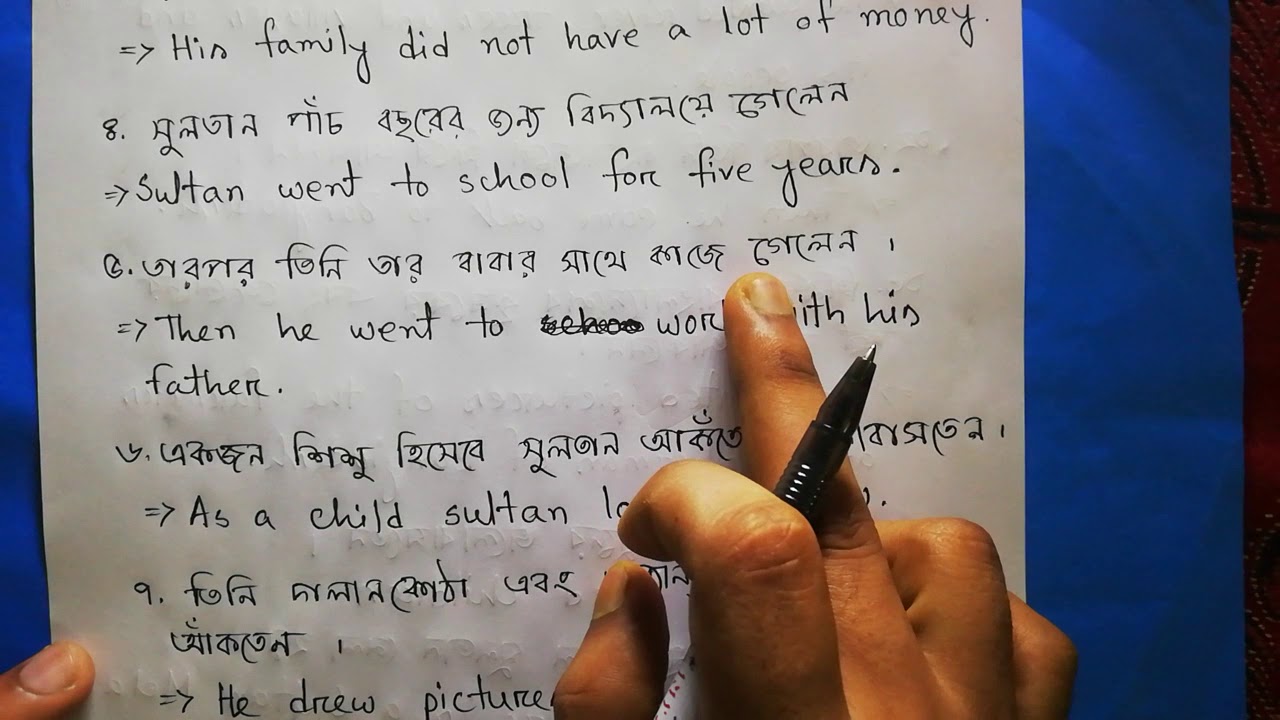 => His family did not have a lot of money.
৪. সুলতান পাঁচ বছরের জন্য বিদ্যালয়ে গেলেন
=> Sultan went to school for five years.
৫. তারপর তিনি তার বাবার সাথে কাজে গেলেন ।
=> Then he went to with his
father.
৬. একজন শিশু হিসেবে সুলতান আকঁতে
=> As a child sultan
৭. তিনি দালানকোঠা এবং
আঁকতেন ।
=> He drew